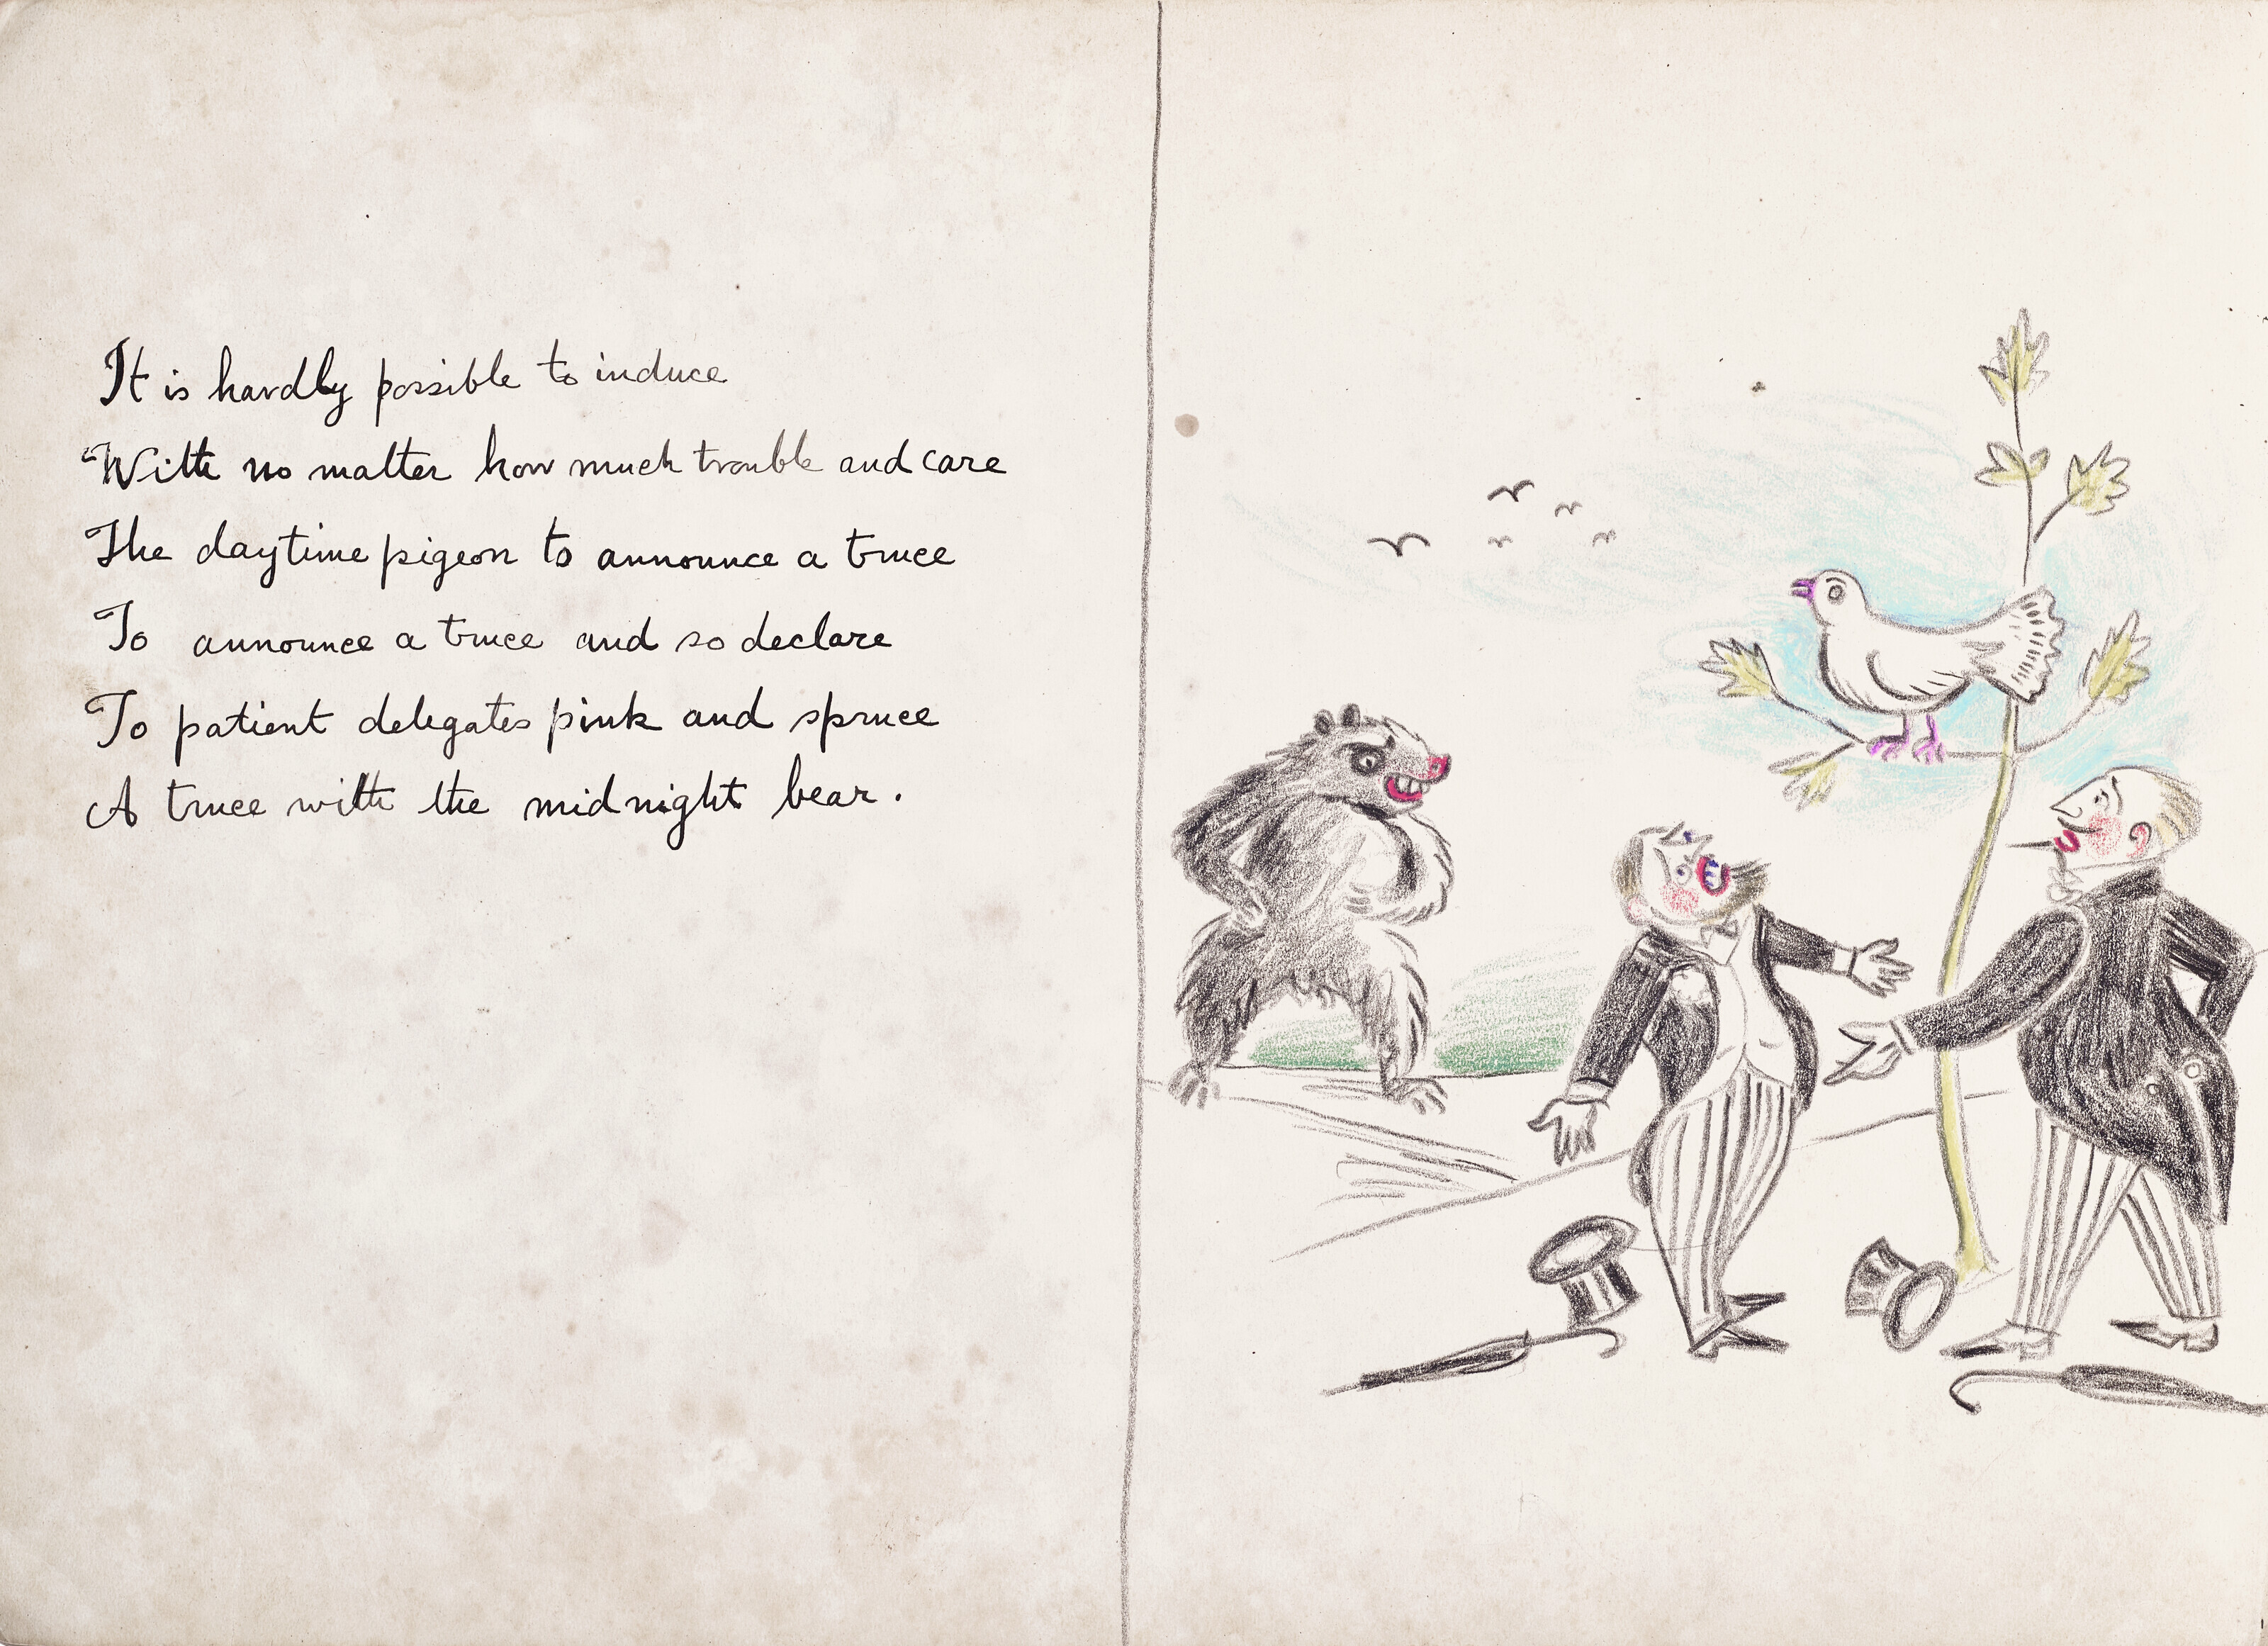 It is hardly possible to induce
With no matter how much trouble and care
The daytime pigeon to announce a truce
To announce a truce and so declare
To patient delegates pink and spruce
A truce with the midnight bear.